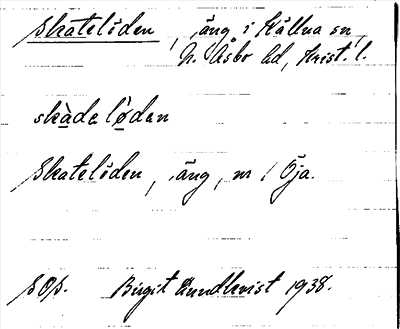 Skatelöden, äng i Källna sn,
N. Åsbo hd, Krist. l.
skàdelø̀dan
Skatelöden, äng, nr 1 Öja.
SOS. Birgit Lundkvist 1938.